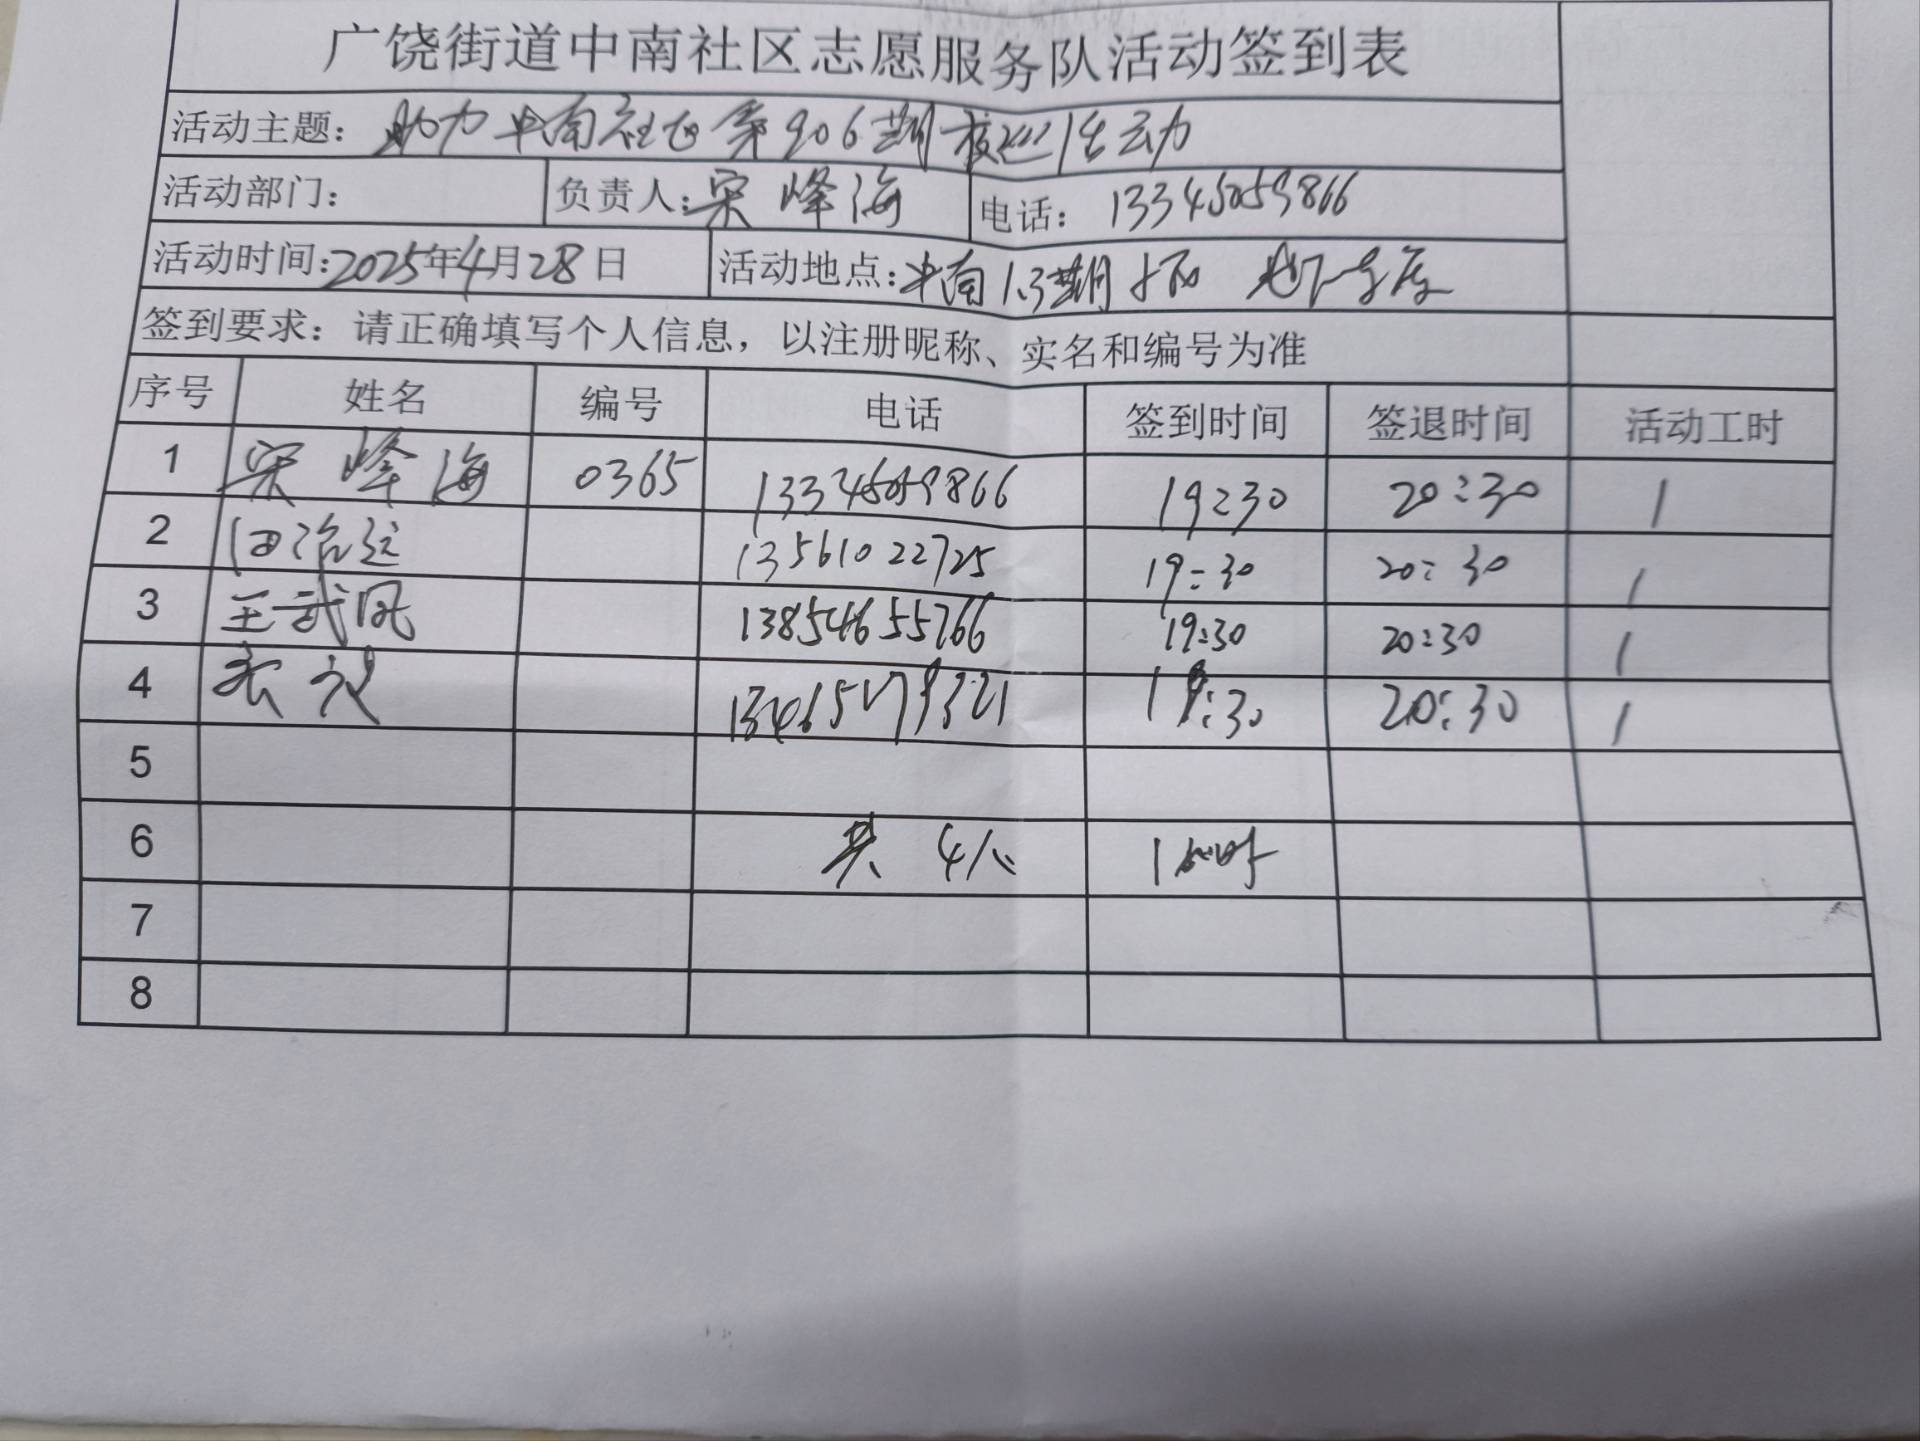 广饶街道中南社区志愿服务队活动签到表
活动主题：助力中南社区第906期夜巡活动
活动部门： 负责人：宋峰海 电话：13345059866
活动时间：2025年4月28日 活动地点：中南1.3期 地下车库
签到要求：请正确填写个人信息，以注册昵称、实名和编号为准
序号 姓名 编号 电话 签到时间 签退时间 活动工时
1 宋峰海 0365 13345059866 19:30 20:30 1
2 13561022725 19:30 20:30 1
3 王武凤 13854655766 19:30 20:30 1
4 19:30 20:30 1
5
6 共4人 1小时
7
8